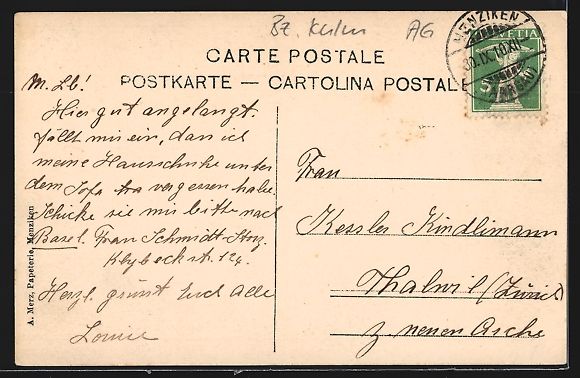 Bz. Kulm AG
CARTE POSTALE
POSTKARTE — CARTOLINA POSTALE
MENZIKEN
30.IX.10.XII
(AARGAU)
HELVETIA
5
M. Lb!
Hier gut angelangt.
fällt mir ein, dass ich
meine Hausschuhe unter
dem Sofa vergessen habe
Schicke sie mir bitte nach
Basel. Frau Schmidt-Storz.
Klybeckstr. 124.
Herzl. grüsst Euch Alle
Louise
Frau
Kessler Kindlimann
Thalwil (Zürich)
z. neuen Arche
A. Merz, Papeterie, Menziken